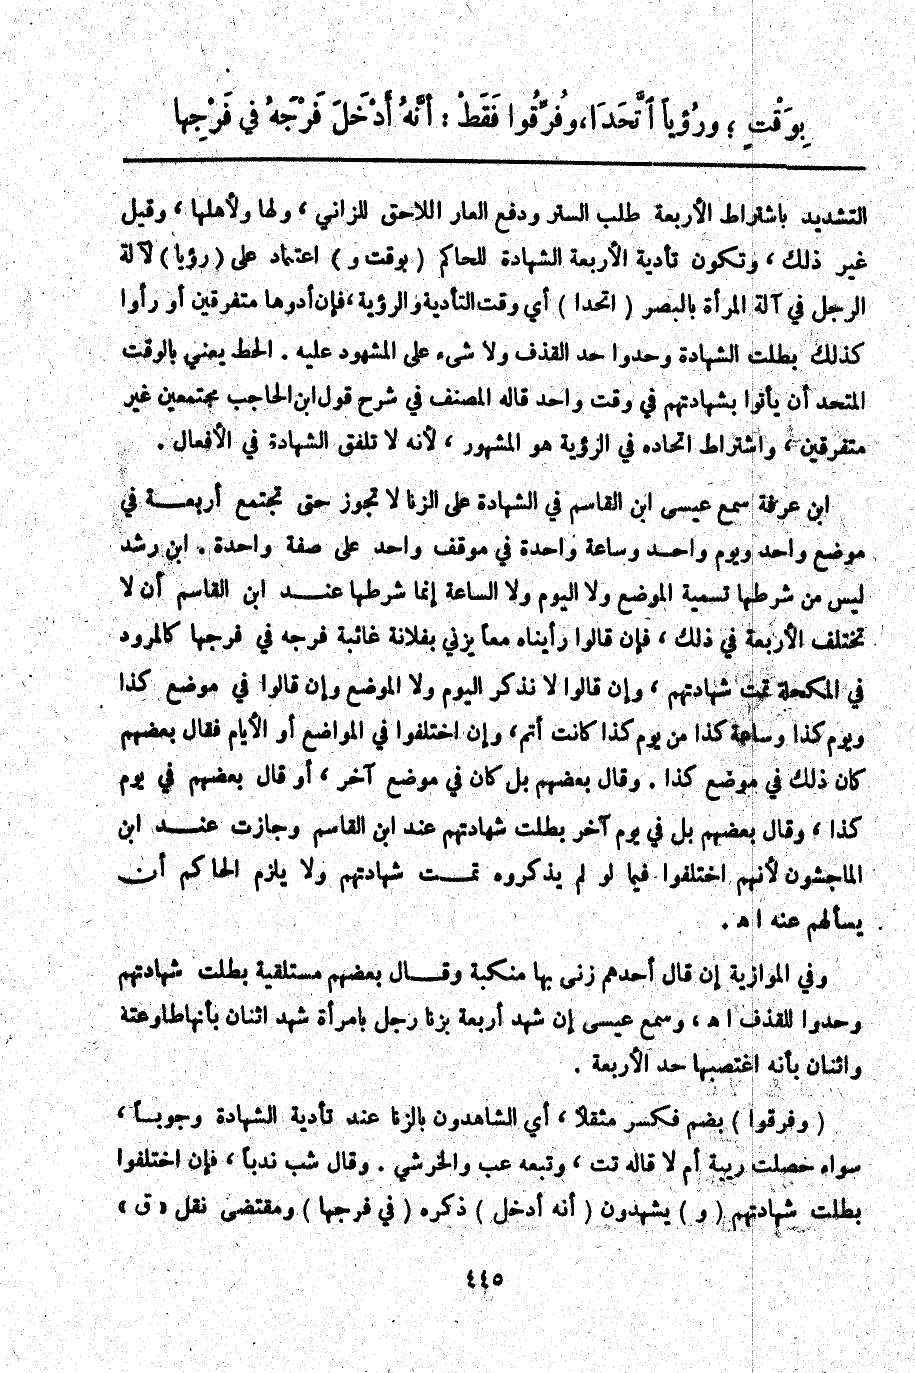 بِوَقْتٍ ؛ ورُؤْياَ ٱتَّحَدَا، وفُرِّقُوا فَقَطْ : أَنَّهُ أَدْخَلَ فَرْجَهُ فِي فَرْجِها
التشديد باشتراط الأربعة طلب الستر ودفع العار اللاحق للزاني ، ولها ولأهلها ، وقيل
غير ذلك ، وتكون تأدية الأربعة الشهادة للحاكم ( بوقت و ) اعتماد على ( رؤيا ) لآلة
الرجل في آلة المرأة بالبصر ( اتحدا ) أي وقت التأدية والرؤية ، فإن أدوها متفرقين أو رأوا
كذلك بطلت الشهادة وحدوا حد القذف ولا شيء على المشهود عليه . الحط يعني بالوقت
المتحد أن يأتوا بشهادتهم في وقت واحد قاله المصنف في شرح قول ابن الحاجب مجتمعين غير
متفرقين ، واشتراط اتحاده في الرؤية هو المشهور ، لأنه لا تلفق الشهادة في الأفعال .
ابن عرفة سمع عيسى ابن القاسم في الشهادة على الزنا لا تجوز حتى تجتمع أربعـــة في
موضع واحد ويوم واحـد وساعة واحدة في موقف واحد على صفة واحدة . ابن رشد
ليس من شرطها تسمية الموضع ولا اليوم ولا الساعة إنما شرطها عنـــد ابن القاسم أن لا
تختلف الأربعة في ذلك ، فإن قالوا رأيناه معاً يزني بفلانة غائبة فرجه في فرجها كالمرود
في المكحلة تمت شهادتهم ، وإن قالوا لا نذكر اليوم ولا الموضع وإن قالوا في موضع كذا
ويوم كذا وساعة كذا من يوم كذا كانت أتم، وإن اختلفوا في المواضع أو الأيام فقال بعضهم
كان ذلك في موضع كذا . وقال بعضهم بل كان في موضع آخر ، أو قال بعضهم في يوم
كذا ، وقال بعضهم بل في يوم آخر بطلت شهادتهم عند ابن القاسم وجازت عنـــد ابن
الماجشون لأنهم اختلفوا فيما لو لم يذكروه تمـــت شهادتهم ولا يلزم الحاكم أن
يسألهم عنه ا ه .
وفي الموازية إن قال أحدهم زنى بها منكبة وقـــال بعضهم مستلقية بطلت شهادتهم
وحدوا للقذف ا ه ، وسمع عيسى إن شهد أربعة بزنا رجل بامرأة شهد اثنان بأنها طاوعته
واثنان بأنه اغتصبها حد الأربعة .
( وفرقوا ) بضم فكسر مثقلاً ، أي الشاهدون بالزنا عند تأدية الشهادة وجوبـاً ،
سواء حصلت ريبة أم لا قاله تت ، وتبعه عب والخرشي . وقال شب ندباً ، فإن اختلفوا
بطلت شهادتهم ( و ) يشهدون ( أنه أدخل ) ذكره ( في فرجها ) ومقتضى نقل « ق »
٤٤٥